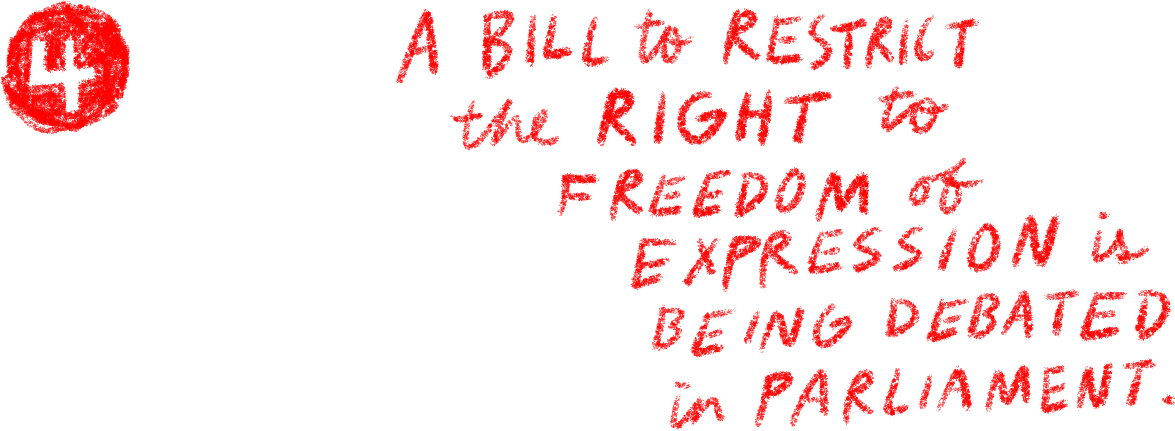 4
A BILL to RESTRICT
the RIGHT to
FREEDOM of
EXPRESSION is
BEING DEBATED
in PARLIAMENT.